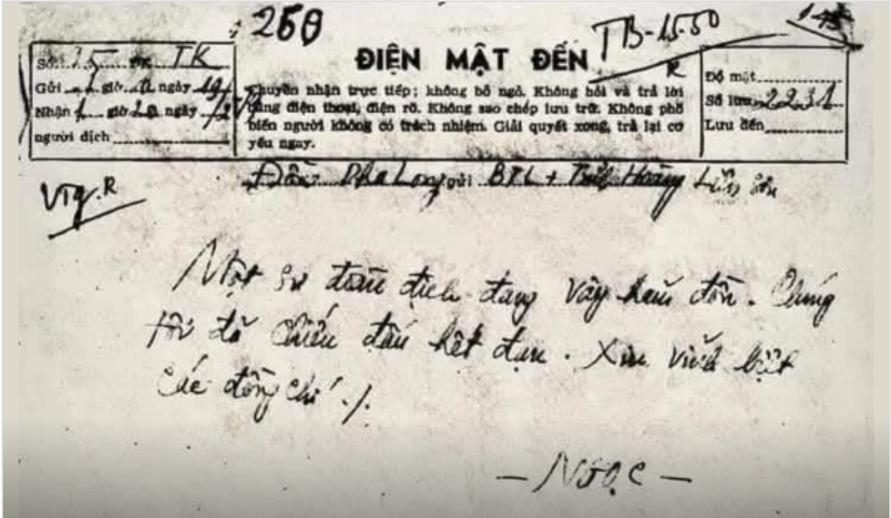 250
TB-15.50
R
ĐIỆN MẬT ĐẾN
Số: 25 ĐK TK
Gửi giờ ngày 19/2
Nhận giờ 20 ngày 19/2
người dịch
Chuyển nhận trực tiếp; không bỏ ngỏ. Không hỏi và trả lời
bằng điện thoại, điện rõ. Không sao chép lưu trữ. Không phổ
biến người không có trách nhiệm. Giải quyết xong, trả lại cơ
yếu ngay.
Độ mật
Số lưu 2231
Lưu đến
Đồn Pha Long gửi BTL + Tỉnh Hoàng Liên Sơn
VTq. R
Một sư đoàn địch đang vây hãm đồn. Chúng
tôi đã chiến đấu hết đạn. Xin vĩnh biệt
các đồng chí ./.
- NGỌC -